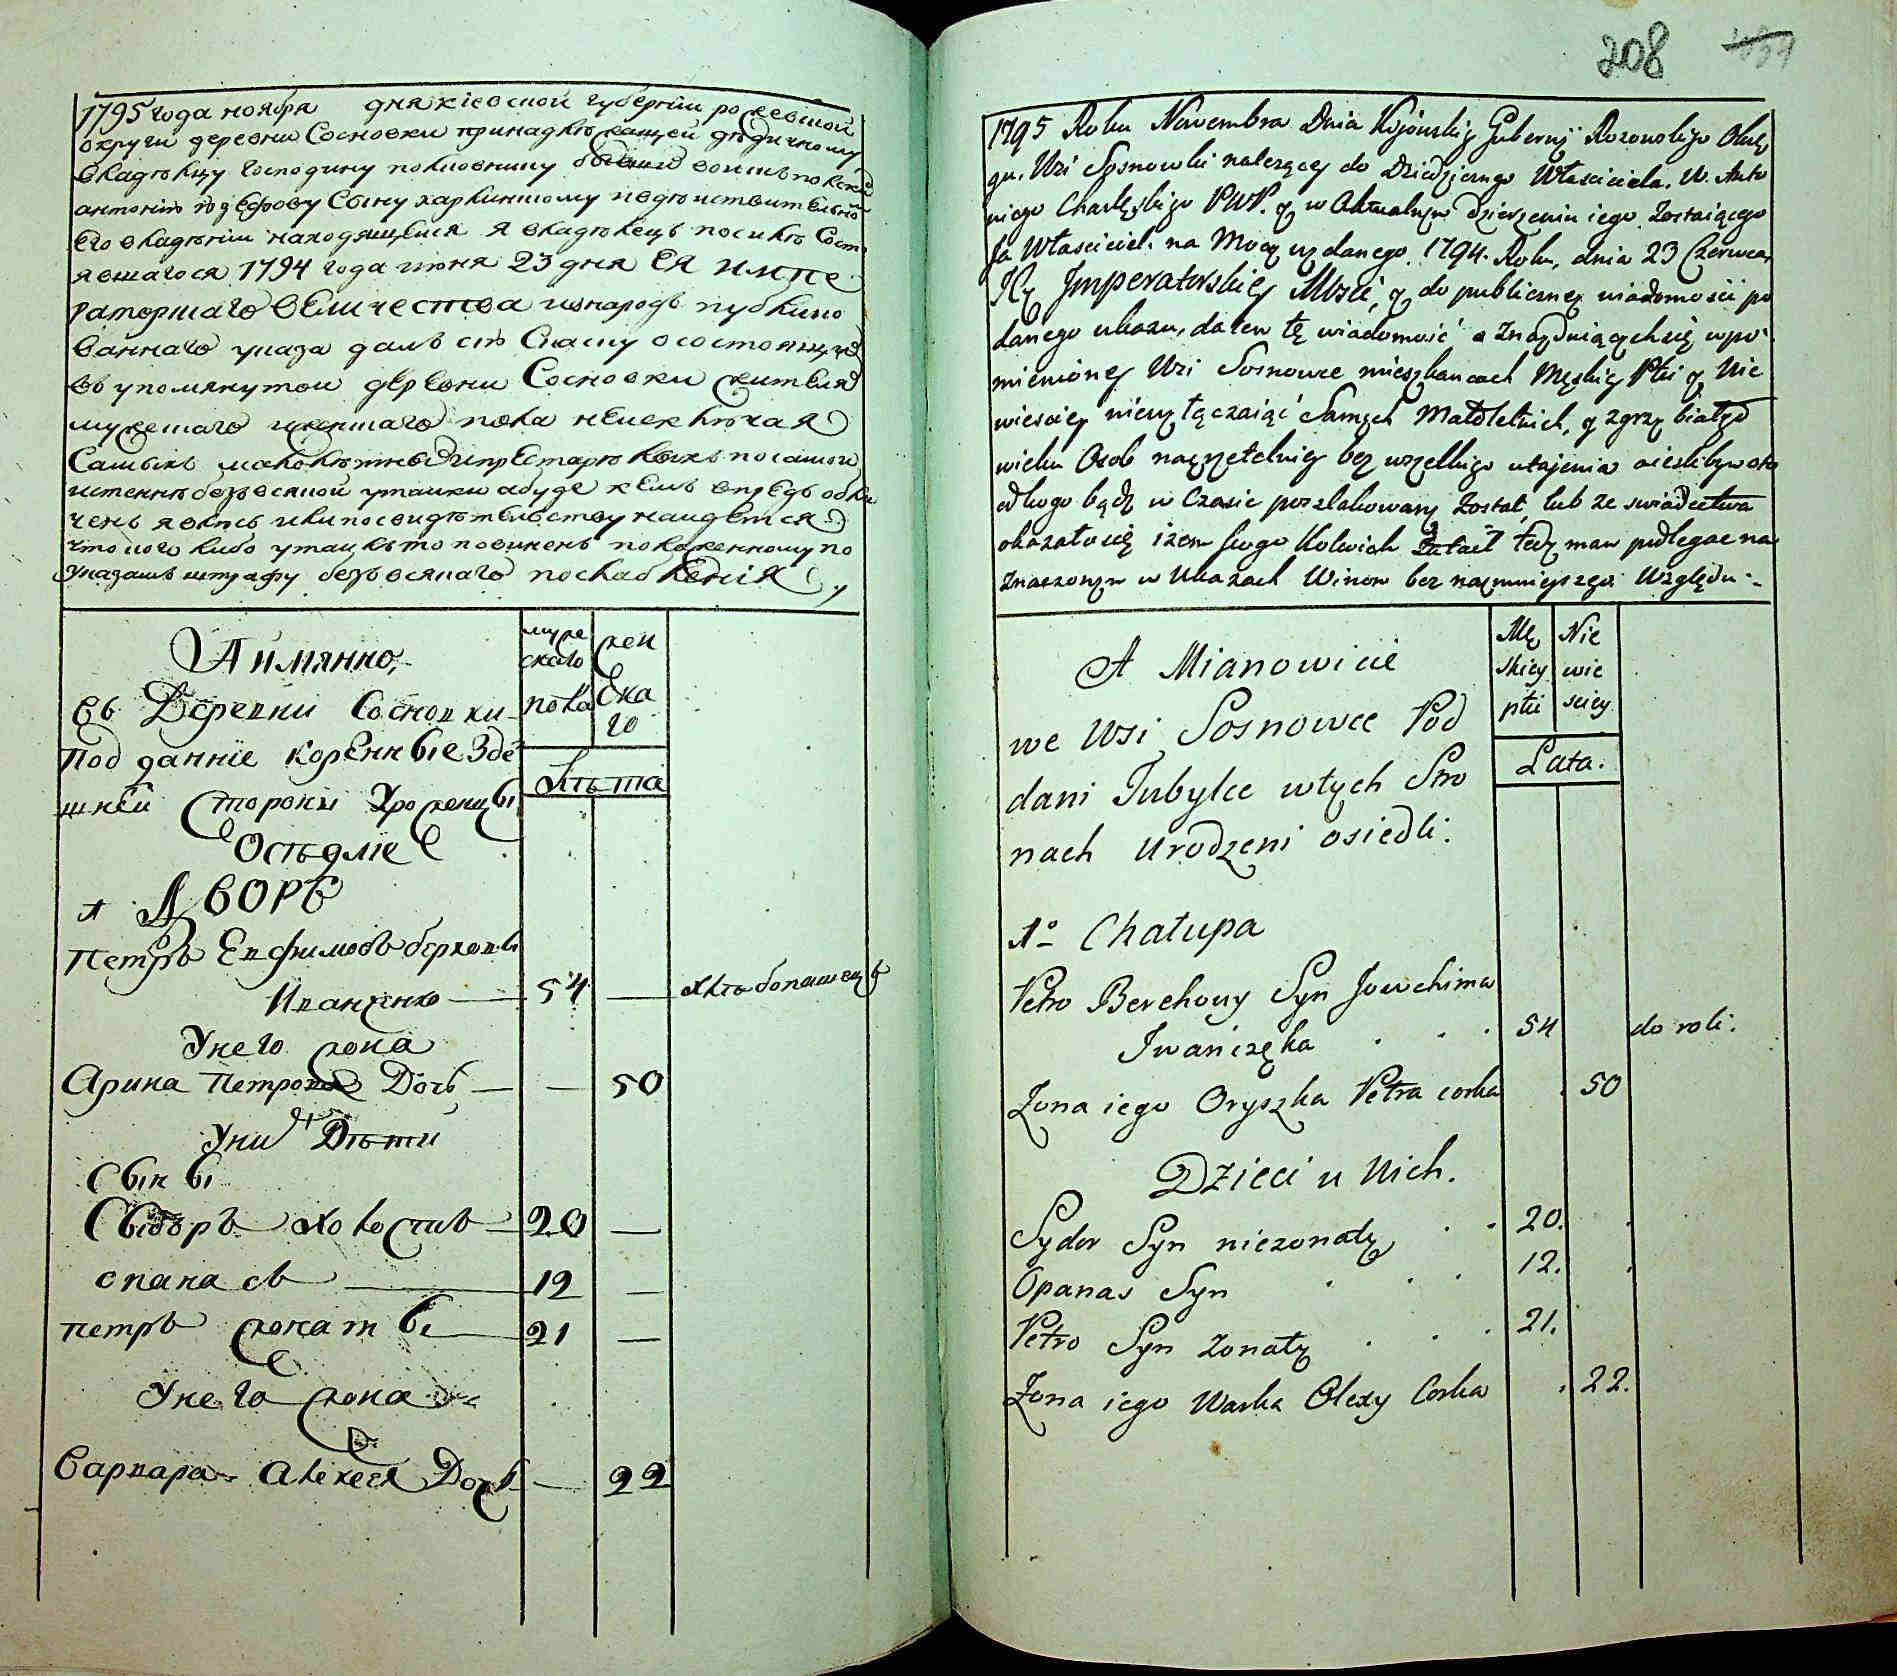 208
1795 года ноября дня кіевской губерніи рожевской
округи деревни Сосновки принадлежащей дедичному
владелцу господину полковнику бывших воискъ полских
антонію юзефову Сыну харлинскому и въ действителномъ
его владеніи находящейся я владелецъ по силе Состо
явшагося 1794 года июня 23 дня ЕЯ ИМПЕ
раторскаго величества и въ народъ публико
ваннаго указа далъ сію Скаску о состоящихъ
въ упомянутой деревни Сосновки жителяхъ
мужескаго и женскаго пола не исключая
Самыхъ малолетныхъ и престарелыхъ по самой
истенне безъ всякой утайки а буде кемъ впредь обли
ченъ явлюсь или по свидетелству найдется
что кого либо утаилъ то повиненъ положенному по
указамъ штрафу безъ всякаго послабленія
А имянно
муже
скаго
пола
жен
ска
го
Въ Деревни Сосновки
Подданніе коренные Зде
шней Стороны Уроженцы
Оседліе
Лета
1 ДВОРЪ
Петръ Евфимовъ береховы
Иванченко — 54 — хлебопашецъ
У него жона
Арина Петрова Дочь — — 50
У них Дети
Сыны
Сыдоръ холостъ — 20 —
опанасъ — 12 —
петръ жонаты — 21 —
У него жона
Варвара Алексея Дочь — 22
1795 Roku Novembra Dnia Kijowskiey Gubernij Rozowskiego Okrę
gu. Wsi Sosnowki należącey do Dziedzicznego Właściciela. W. Anto
niego Charlęskiego PWP. y w Aktualnym dzierżeniu iego Zostaiącego
Ja Właściciel. na Mocy wydanego 1794. Roku, dnia 23 Czerwca,
Jey Imperatorskiey Mości, y do publiczney wiadomości po
danego ukazu, dałem tę wiadomość o Znayduiącychsię w spo
mienioney Wsi Sosnowce mieszkancach Męskiey Płci y Nie
wiesciey niewyłączaiąc Samych Małoletnich, y zgrzybiałych
wieku Osob nayrzetelniey bez wszelkiego utajenia ieslibym oto
od kogo bądź w Czasie poszlakowany został, lub ze swiadectwa
okazałosię iżem kogo Kolwiek Zataił tedy mam podlegać na
znaczonym w Ukazach Winom bez naymnieyszego Względu.
A Mianowicie
Mę
skiey
płci
Nie
wie
sciey
we Wsi Sosnowce Pod
dani Tubylce w tych Stro
nach Urodzeni osiedli.
Lata.
1º Chałupa
Petro Berehowy Syn Jowchima
Iwaniczęka . . . 54 do roli.
Zona iego Oryszka Petra corka . 50
Dzieci u Nich.
Sydor Syn niezonaty . . 20. .
Opanas Syn . . . 12. .
Petro Syn zonaty . . . 21.
Zona iego Warka Olexy Corka . 22.